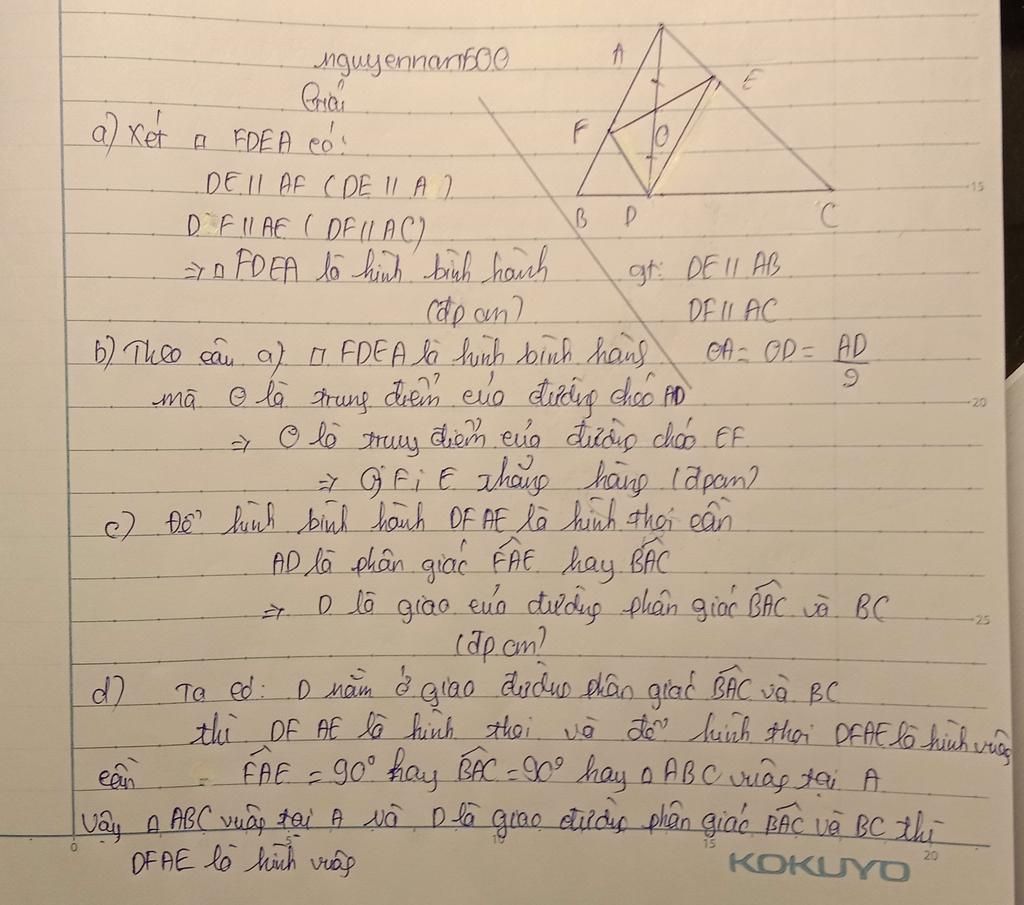 nguyennam600
Giải
A
E
F
O
B
D
C
a) Xét □ FDEA có:
DE // AF (DE // A )
D F // AE (DF // AC)
⇒ □ FDEA là hình bình hành
(đpcm)
gt: DE // AB
DF // AC
OA = OD = AD/2
b) Theo câu a) □ FDEA là hình bình hàng
mà O là trung điểm của đường chéo AD
⇒ O là trung điểm của đường chéo EF
⇒ O; F; E thẳng hàng (đpcm)
c) Để hình bình hành DFAE là hình thoi cần
AD là phân giác FAE hay BAC
⇒ D là giao của đường phân giác BAC và BC
(đpcm)
d) Ta có: D nằm ở giao đường phân giác BAC và BC
thì DF AE là hình thoi và để hình thoi DFAE là hình vuông
cần FAE = 90° hay BAC = 90° hay △ ABC vuông tại A
Vậy △ ABC vuông tại A và D là giao đường phân giác BAC và BC thì
DFAE là hình vuông
15
20
25
0
5
10
15
20
KOKUYO